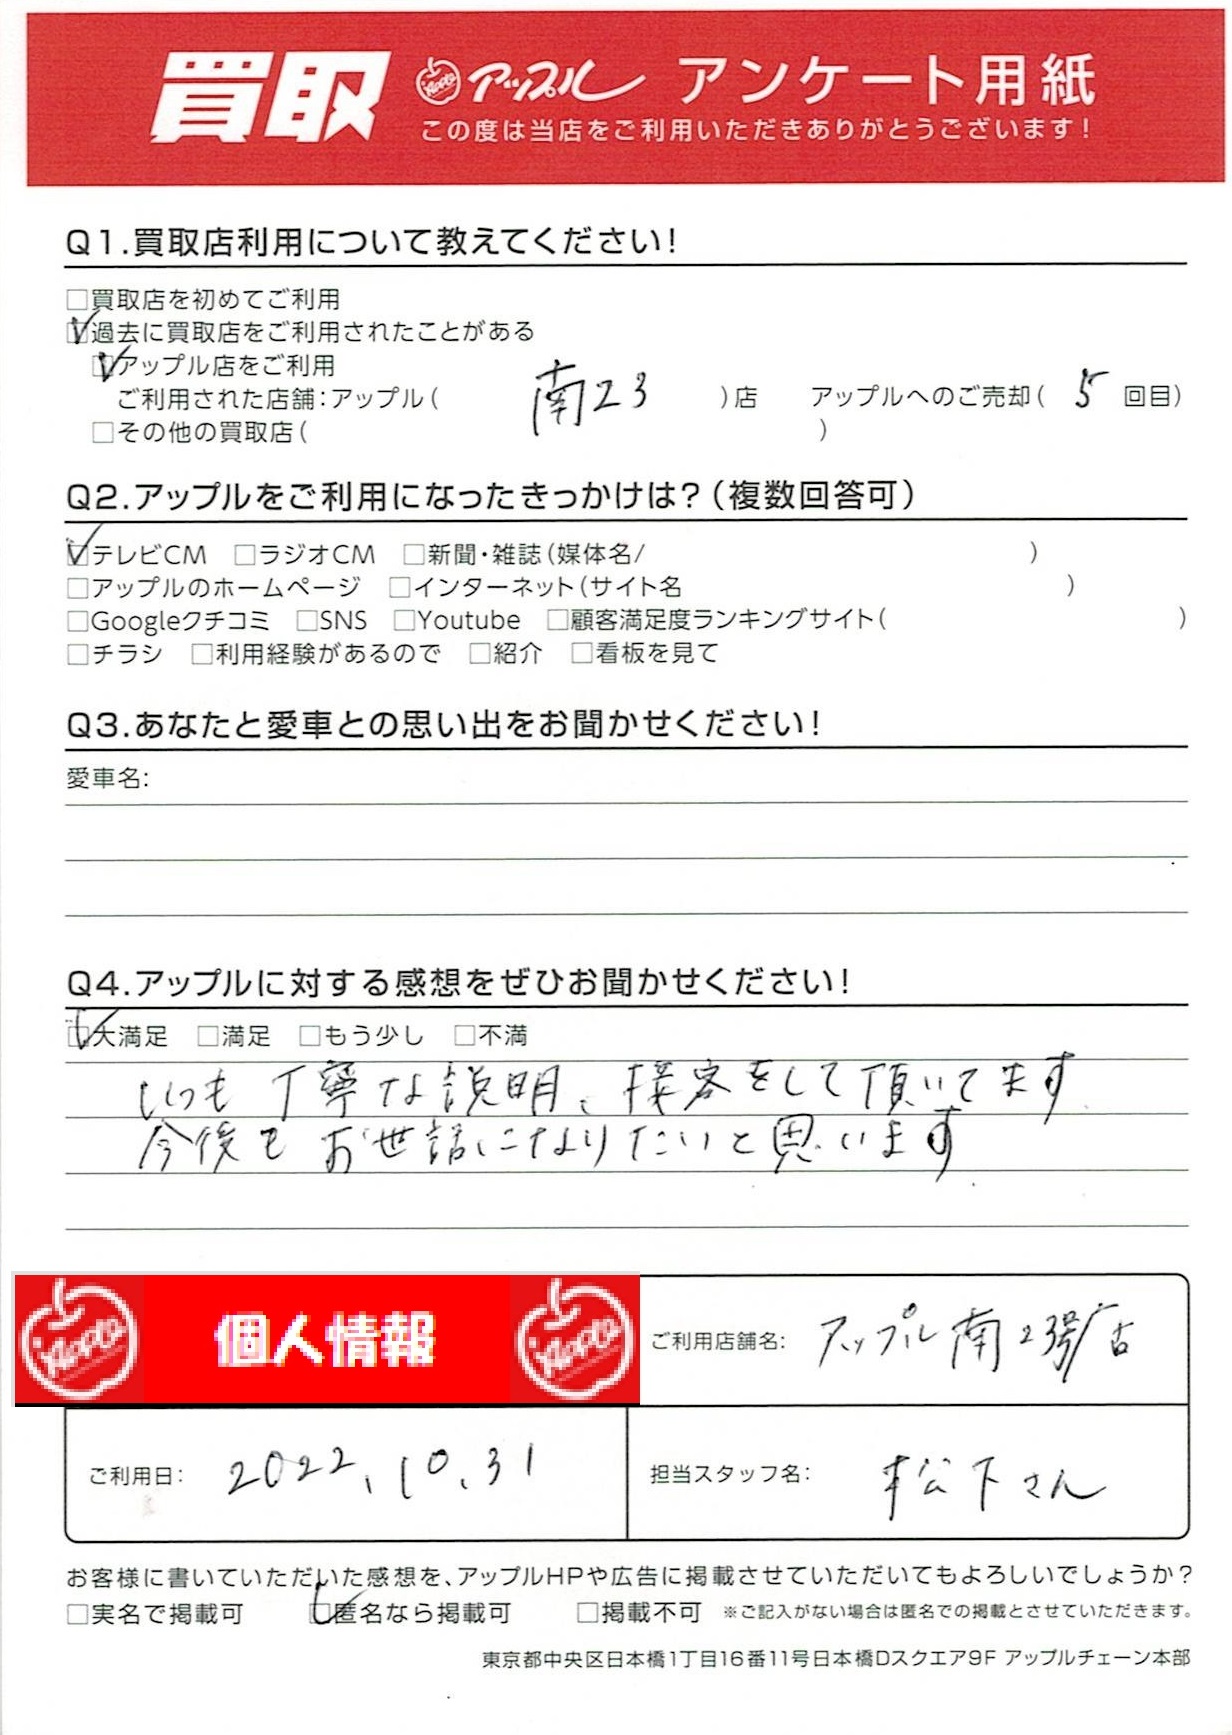 買取 アップル アンケート用紙
この度は当店をご利用いただきありがとうございます!
Q1.買取店利用について教えてください!
□買取店を初めてご利用
☑過去に買取店をご利用されたことがある
☑アップル店をご利用
ご利用された店舗:アップル( 南23 )店 アップルへのご売却( 5 回目)
□その他の買取店( )
Q2.アップルをご利用になったきっかけは?(複数回答可)
☑テレビCM □ラジオCM □新聞・雑誌(媒体名/ )
□アップルのホームページ □インターネット(サイト名 )
□Googleクチコミ □SNS □Youtube □顧客満足度ランキングサイト( )
□チラシ □利用経験があるので □紹介 □看板を見て
Q3.あなたと愛車との思い出をお聞かせください!
愛車名:
Q4.アップルに対する感想をぜひお聞かせください!
☑大満足 □満足 □もう少し □不満
いつも丁寧な説明、接客をして頂いてます
今後もお世話になりたいと思います
Apple 個人情報 Apple
ご利用店舗名: アップル南23号店
ご利用日: 2022.10.31
担当スタッフ名: 松下さん
お客様に書いていただいた感想を、アップルHPや広告に掲載させていただいてもよろしいでしょうか?
□実名で掲載可 ☑匿名なら掲載可 □掲載不可 ※ご記入がない場合は匿名での掲載とさせていただきます。
東京都中央区日本橋1丁目16番11号日本橋Dスクエア9F アップルチェーン本部